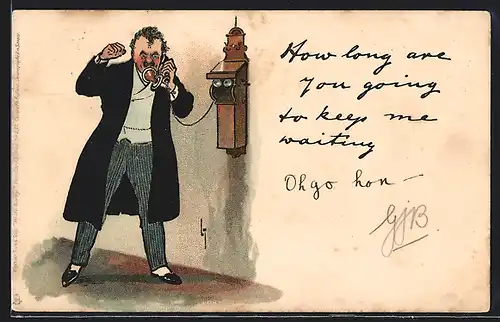 How long are
you going
to keep me
waiting
Oh go hon —
GJB